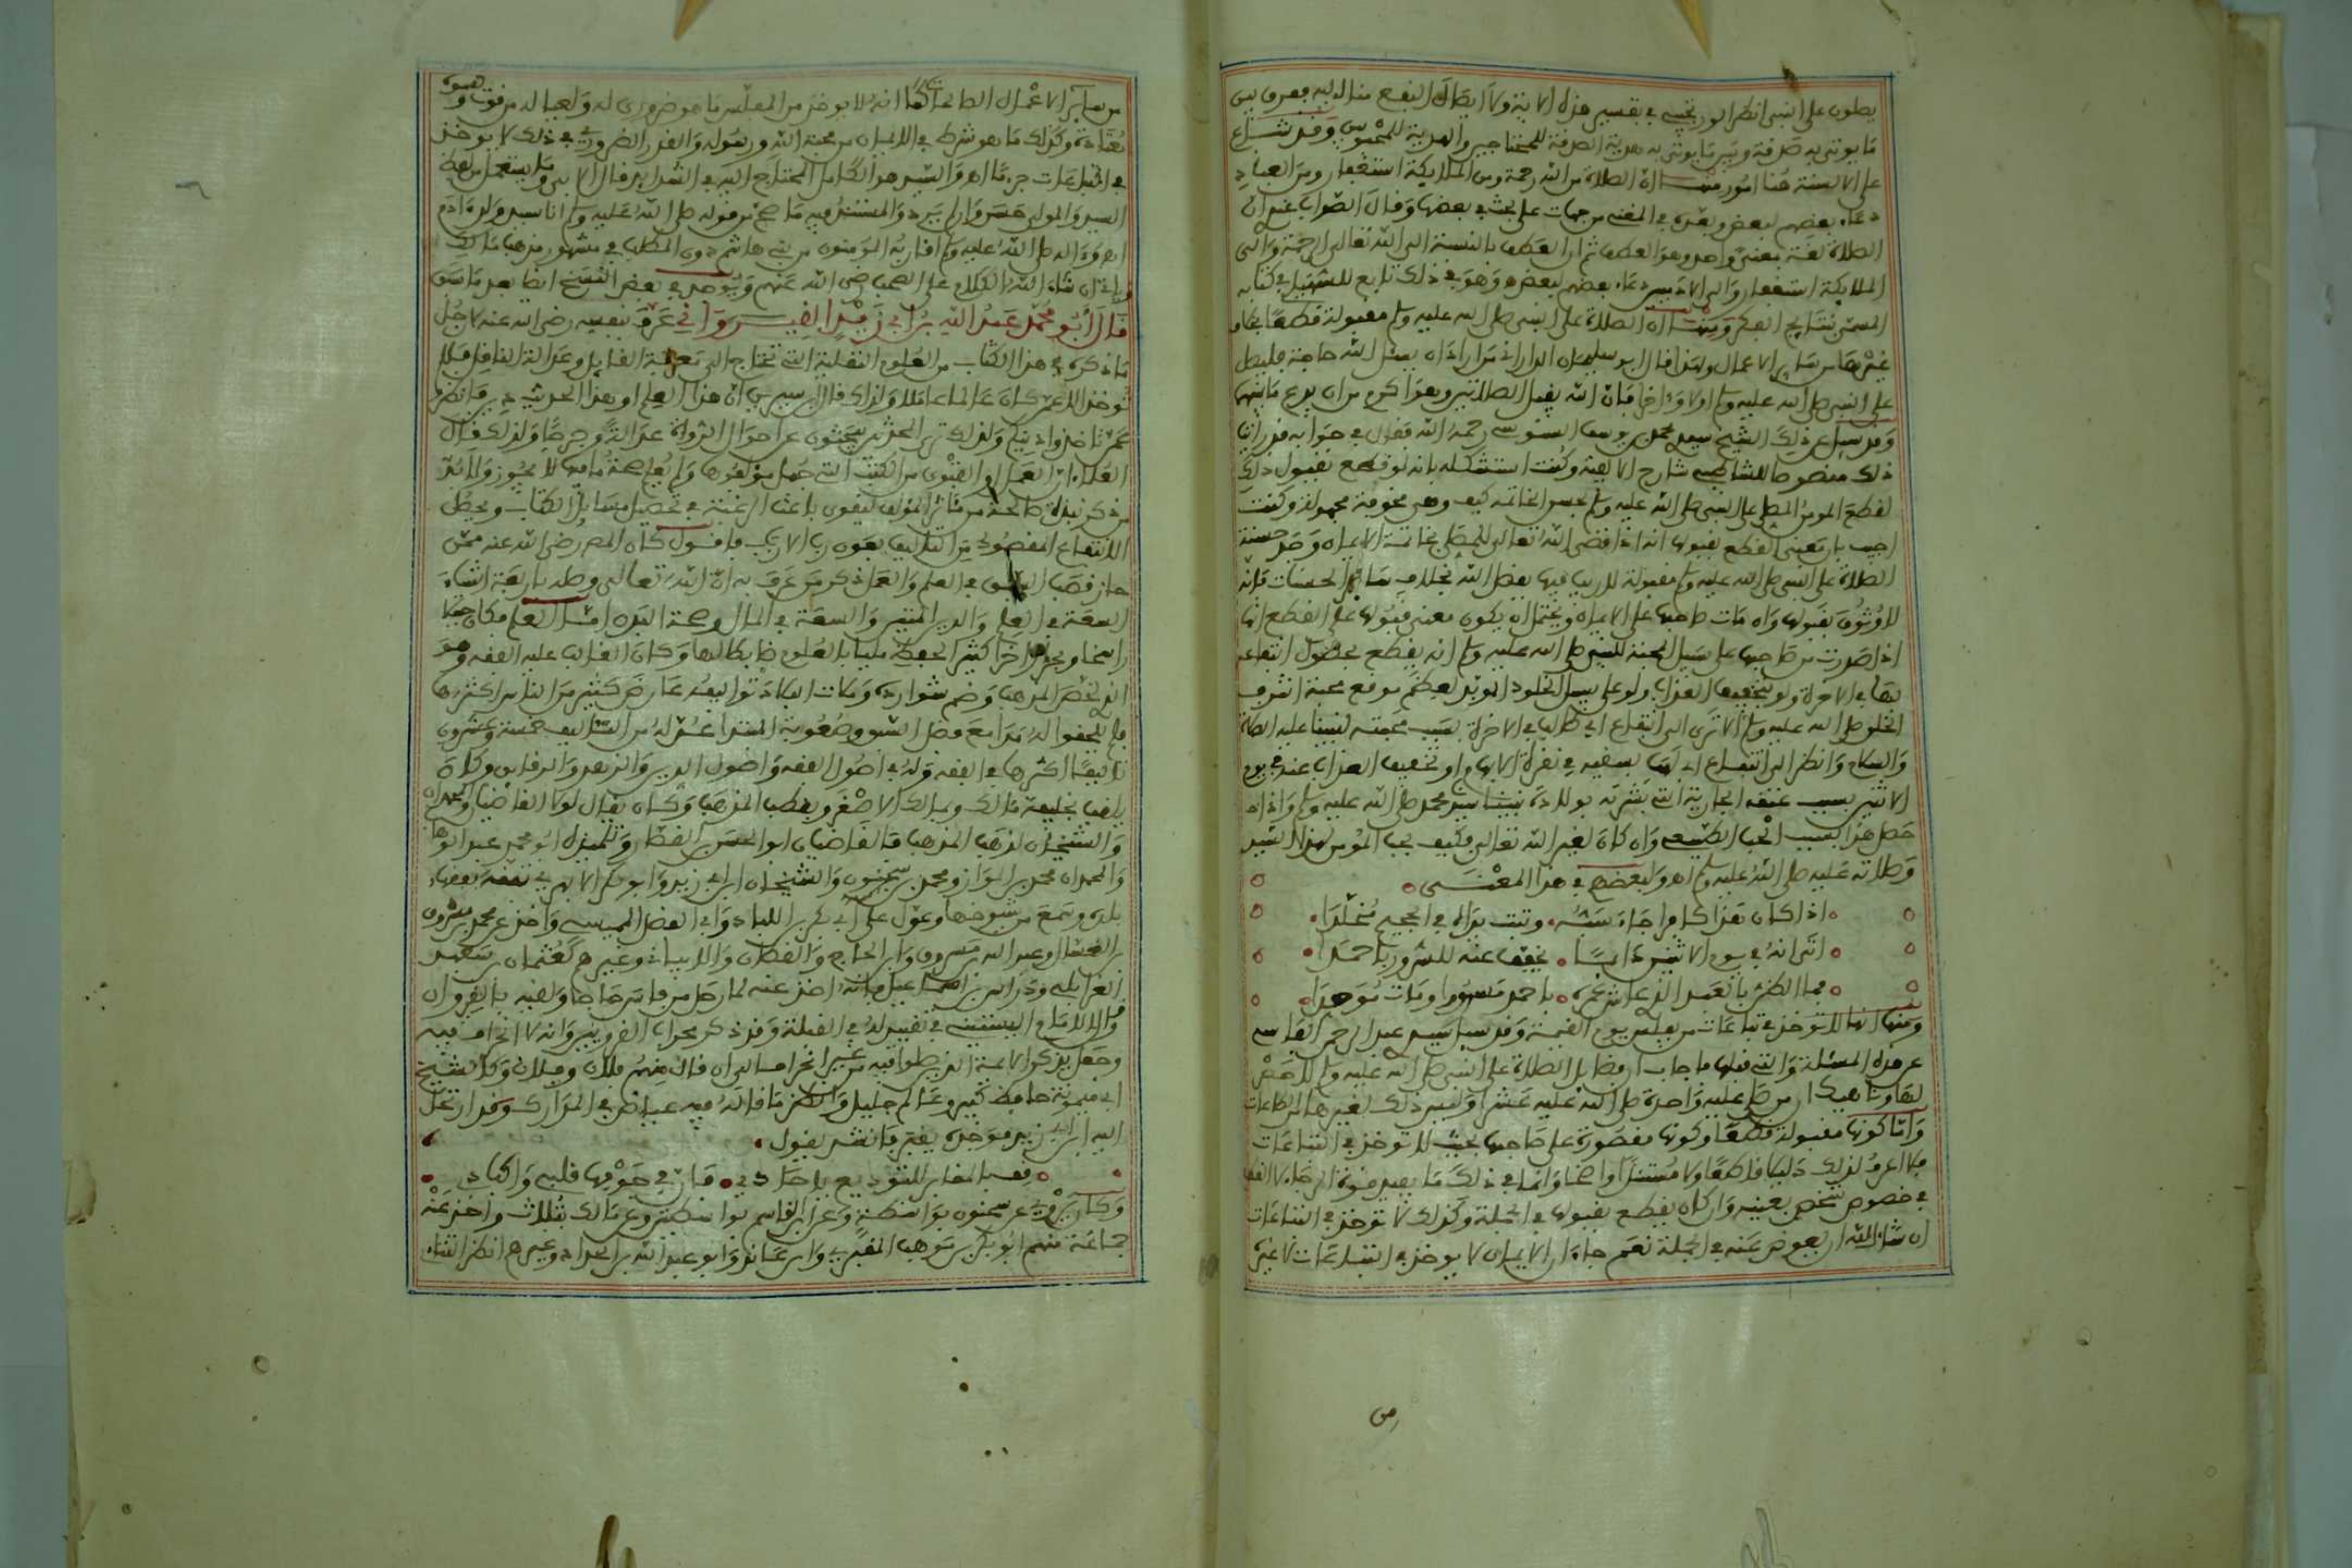 يصلون على النبي انظر البوريجي في تفسير هذه الاية ولا ايصال النفع منا اليه ففرق بين
ما يوتى به صدقة وبين ما يوتى به هدية الصدقة للمحتاجين والهدية للمحبوبين وقد شاع
على الالسنة هنا امور منها ان الصلاة من الله رحمة ومن الملايكة استغفار ومن العباد
دعاء بعضهم لبعض وبعده في المغني من جهات على بحث في بعضها وقال الصواب عندي ان
الصلاة لغة بمعنى واحد وهو العطف ثم ان العطف بالنسبة الى الله تعالى الرحمة والى
الملايكة استغفار والى الادميين دعاء بعضهم لبعض وهو في ذلك تابع للسهيلي في كتابه
المسمى نتايج الفكر ومنها ان الصلاة على النبي صلى الله عليه وسلم مقبولة قطعا بخلاف
غيرها من ساير الاعمال ولهذا قال ابو سليمان الداراني من اراد ان يسئل الله حاجة فليصل
على النبي صلى الله عليه وسلم اولا واخرا فان الله يقبل الصلاتين وهو اكرم من ان يدع ما بينهما
وقد سيل عن ذلك الشيخ سيدي محمد بن يوسف السنوسي رحمه الله فقال في جوابه قد رايت
ذلك منصوصا للشاطبي شارح الالفية وكنت استشكله بانه لو قطع بقبول ذلك
لقطع المومن المصلي على النبي صلى الله عليه وسلم بحسن الخاتمة كيف وهي مخوفة مجهولة وكنت
اجيب بان معنى القطع بقبولها انه اذا قضى الله تعالى للمصلي بخاتمة الايمان وجد حسنة
الصلاة على النبي صلى الله عليه وسلم مقبولة لا ريب فيها بفضل الله بخلاف ساير الحسنات فانه
لا وثوق بقبولها وان مات صاحبها على الايمان ويحتمل ان يكون معنى قبولها على القطع انها
اذا صدرت من صاحبها على سبيل المحبة للنبي صلى الله عليه وسلم انه يقطع بحصول انتفاعه
بها في الاخرة ولو بتخفيف العذاب ولو على سبيل الخلود المويد لعظم موقع محبة اشرف
الخلق صلى الله عليه وسلم الا ترى الى انتفاع ابي طالب في الاخرة بسبب محبته لنبينا عليه الصلاة
والسلام وانظر الى انتفاع ابي لهب بسقيه في نقرة الابهام او تخفيف العذاب عنه في يوم
الاثنين بسبب عتقه الجارية التي بشرته بولادة نبينا سيدنا محمد صلى الله عليه وسلم واذا
حصل هذا بسبب الحب الطبيعي وان كان لغير الله تعالى فكيف بحب المومن لهذا السيد
وصلاته عليه صلى الله عليه وسلم اهـ ولبعضهم في هذا المعنى
اذا كان هذا كافرا جاء ذمه وتبت يداه في الجحيم مخلدا
اتى انه في يوم الاثنين دايما يخفف عنه للسرور باحمدا
فما الظن بالعبد الذي عاش عمره باحمد مسرورا ومات موحدا
ومنها انها لا توخذ في تباعات من يصلي يوم القيامة وقد سيل سيدي عبد الرحمن الفاسي
عن هذه المسئلة والتي قبلها فاجاب ان فضايل الصلاة على النبي صلى الله عليه وسلم لا حصر
لها وناهيك ان من صلى عليه واحدة صلى الله عليه عشرا وليس ذلك لغيرها من الطاعات
واما كونها مقبولة قطعا وكونها مقصورة على صاحبها بحيث لا توخذ في التباعات
فلا اعرف لذلك دليلا قاطعا ولا مستندا واضحا وانما في ذلك ما يفيد قوة الرجاء لا القطع
في خصوص شخص بعينه وان كان يقطع بقبولها في الجملة وكذلك لا توخذ في التباعات
ان شاء الله ان يعوض عنه في الجملة نعم جاء ان الايمان لا يوخذ في التباعات لا غيره
من ساير الاعمال الصالحات كما انه لا يوخذ من المفلس ما هو ضروري له ولعياله من قوت وكسوة
معتادة وكذلك ما هو شرط في الايمان من محبة الله ورسوله والقدر الضروري في ذلك لا يوخذ
في التباعات جزما اهـ والسيد هو الكامل المحتاج اليه في الشدايد قال الابي وما يستعمل من لفظ
السيد والمولى حسن وان لم يرد والمستند فيه ما صح من قوله صلى الله عليه وسلم انا سيد ولد ادم
اهـ واله صلى الله عليه وسلم اقاربه المومنون من بني هاشم دون المطلب في مشهور مذهب مالك
وياتي ان شاء الله الكلام على الصحب رضي الله عنهم ويوجد في بعض النسخ ايضا بعد ما سبق
قال ابو محمد عبد الله بن ابي زيد القيرواني عرف بنفسه رضي الله عنه لاجل
ما ذكره في هذا الكتاب من العلوم النقلية التي تحتاج الى معرفة القايل وعدالة الناقل فلا
توخذ الا عمن كان عالما عاملا ولذلك قال ابن سيرين ان هذا العلم او هذا الحديث دين فانظروا
عمن تاخذوا دينكم ولذلك ترى المحدثين يبحثون عن احوال الرواة عدالة وجرحا ولذلك قال
العلماء ان العمل او الفتوى من الكتب التي جهل مولفوها ولم يعلم صحة ما فيها لا يجوز ولا بد
من ذكر نبذة صالحة من مناثر المولف ليقوى باعث الرغبة في تحصيل مسايل الكتاب ويحصل
الانتفاع المقصود من التاليف بعون رب الارباب فاقول كان المص رضي الله عنه ممن
حاز قصب السبق في العلم والعمل ذكر من عرف به ان الله تعالى وصله باربعة اشياء
السعة في العلم والدين المتين والسعة في المال وصحة البدن اما العلم فكان جبلا
راسخا وبحرا زاخرا كثير الحفظ مليا بالعلوم ضابطا لها وكان الغالب عليه الفقه وهو
الذي لخص المذهب وضم شوارده وملات البلاد تواليفه عارض كثير من الناس اكثرها
فلم يلحقوا له مدا مع فضل السبق وصعوبة المبتدا عد له من التاليف خمسة وعشرون
تاليفا اكثرها في الفقه وله في اصول الفقه واصول الدين والزهد والرقايق وكان
يلقب بخليفة مالك وبمالك الاصغر وبقطب المذهب وكان يقال لولا القاضيان والمحمدان
والشيخان لذهب المذهب فالقاضيان ابو الحسن بن القصار وتلميذه ابو محمد عبد الوهاب
والمحمدان محمد بن المواز ومحمد بن سحنون والشيخان ابن ابي زيد وابو بكر الابهري تفقه بفقهاء
بلده وسمع من شيوخها وعول على ابي بكر بن اللباد وابي الفضل الميسي واخذ عن محمد بن مسرور
بن العسال وعبد الله بن مسرور وابن الحجام والقطان والابياني وغيرهم كعثمان بن سعيد
الغرابلي ودراس بن اسماعيل فانه اخذ عنه لما رحل من فاس حاجا ولقيه بالقيروان
قال الامام البستتي في تقييد له في القبلة وقد ذكر محراب القرويين وانه لا انحراف فيه
وجعل يذكر الايمة الذين صلوا فيه من غير انحراف الى ان قال منهم فلان وفلان وكالشيخ
ابي ميمونة حافظ كبير وعالم جليل وانظر ما قاله فيه عياض في المدارك وقد ارتحل
اليه ابن ابي زيد فوجده يقبر فانشد يقول
قف بالمقابر للتوديع يا حادي فان في جوفها قلبي واكبادي
وكان يروي عن سحنون بواسطة وعن ابن القاسم بواسطتين وعن مالك بثلاث واخذ عنه
جماعة منهم ابو بكر بن موهب المقبري وابن عابد وابو عبد الله بن الحداد وغيرهم انظر الثناء
من